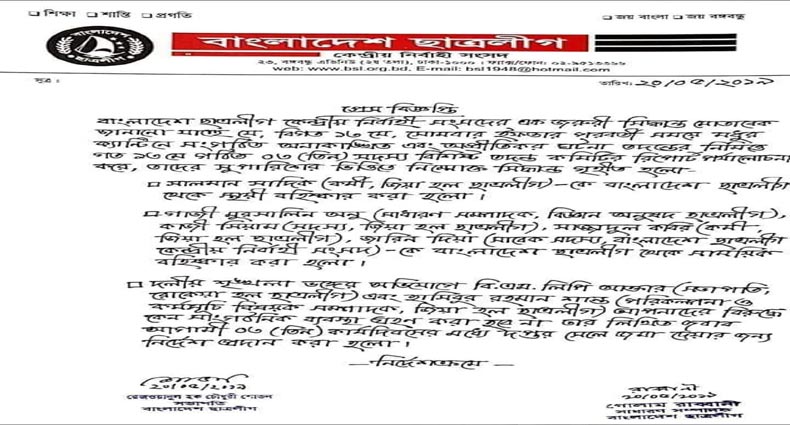 ❑ শিক্ষা ❑ শান্তি ❑ প্রগতি
❑ জয় বাংলা ❑ জয় বঙ্গবন্ধু
বাংলাদেশ ছাত্রলীগ
বাংলাদেশ ছাত্রলীগ
কেন্দ্রীয় নির্বাহী সংসদ
২৩, বঙ্গবন্ধু এভিনিউ (২য় তলা), ঢাকা-১০০০ । ফ্যাক্স/ফোনঃ ০২-৯৫১৩৬৬৬
web: www.bsl.org.bd, E-mail: bsl1948@hotmail.com
সূত্র :
তারিখ: ২০/০৫/২০১৯
প্রেস বিজ্ঞপ্তি
বাংলাদেশ ছাত্রলীগ কেন্দ্রীয় নির্বাহী সংসদের এক জরুরী সিদ্ধান্ত মোতাবেক
জানানো যাচ্ছে যে, বিগত ১৩ মে, সোমবার ইফতার পরবর্তী সময়ে মধুর
ক্যান্টিনে সংগঠিত অনাকাঙ্ক্ষিত এবং অপ্রীতিকর ঘটনা তদন্তের নিমিত্তে
গত ১৩ মে গঠিত ০৩ (তিন) সদস্য বিশিষ্ট তদন্ত কমিটির রিপোর্ট পর্যালোচনা
করে, তাদের সুপারিশের ভিত্তিতে নিম্নোক্ত সিদ্ধান্ত গৃহীত হলো-
❑ সালমান সাদিক (কর্মী, জিয়া হল ছাত্রলীগ)-কে বাংলাদেশ ছাত্রলীগ
থেকে স্থায়ী বহিষ্কার করা হলো।
❑ গাজী মুরসালিন অনু (সাধারণ সম্পাদক, বিজ্ঞান অনুষদ ছাত্রলীগ),
কাজী সিয়াম (সদস্য, জিয়া হল ছাত্রলীগ), সাজ্জাদুল কবির (কর্মী,
জিয়া হল ছাত্রলীগ), জারিন দিয়া (সাবেক সদস্য, বাংলাদেশ ছাত্রলীগ
কেন্দ্রীয় নির্বাহী সংসদ)-কে বাংলাদেশ ছাত্রলীগ থেকে সাময়িক
বহিষ্কার করা হলো।
❑ দলীয় শৃঙ্খলা ভঙ্গের অভিযোগে বি.এম. লিপি আক্তার (সভাপতি,
রোকেয়া হল ছাত্রলীগ) এবং হাসিবুর রহমান শান্ত (পরিকল্পনা ও
কর্মসূচি বিষয়ক সম্পাদক, জিয়া হল ছাত্রলীগ) আপনাদের বিরুদ্ধে
কেন সাংগঠনিক ব্যবস্থা গ্রহণ করা হবে না তার লিখিত জবাব
আগামী ০৩ (তিন) কার্যদিবসের মধ্যে দপ্তর সেলে জমা দেয়ার জন্য
নির্দেশ প্রদান করা হলো।
—নির্দেশক্রমে—
২০/০৫/২০১৯
রেজওয়ানুল হক চৌধুরী শোভন
সভাপতি
বাংলাদেশ ছাত্রলীগ
রাব্বানী
২০/০৫/২০১৯
গোলাম রাব্বানী
সাধারণ সম্পাদক
বাংলাদেশ ছাত্রলীগ